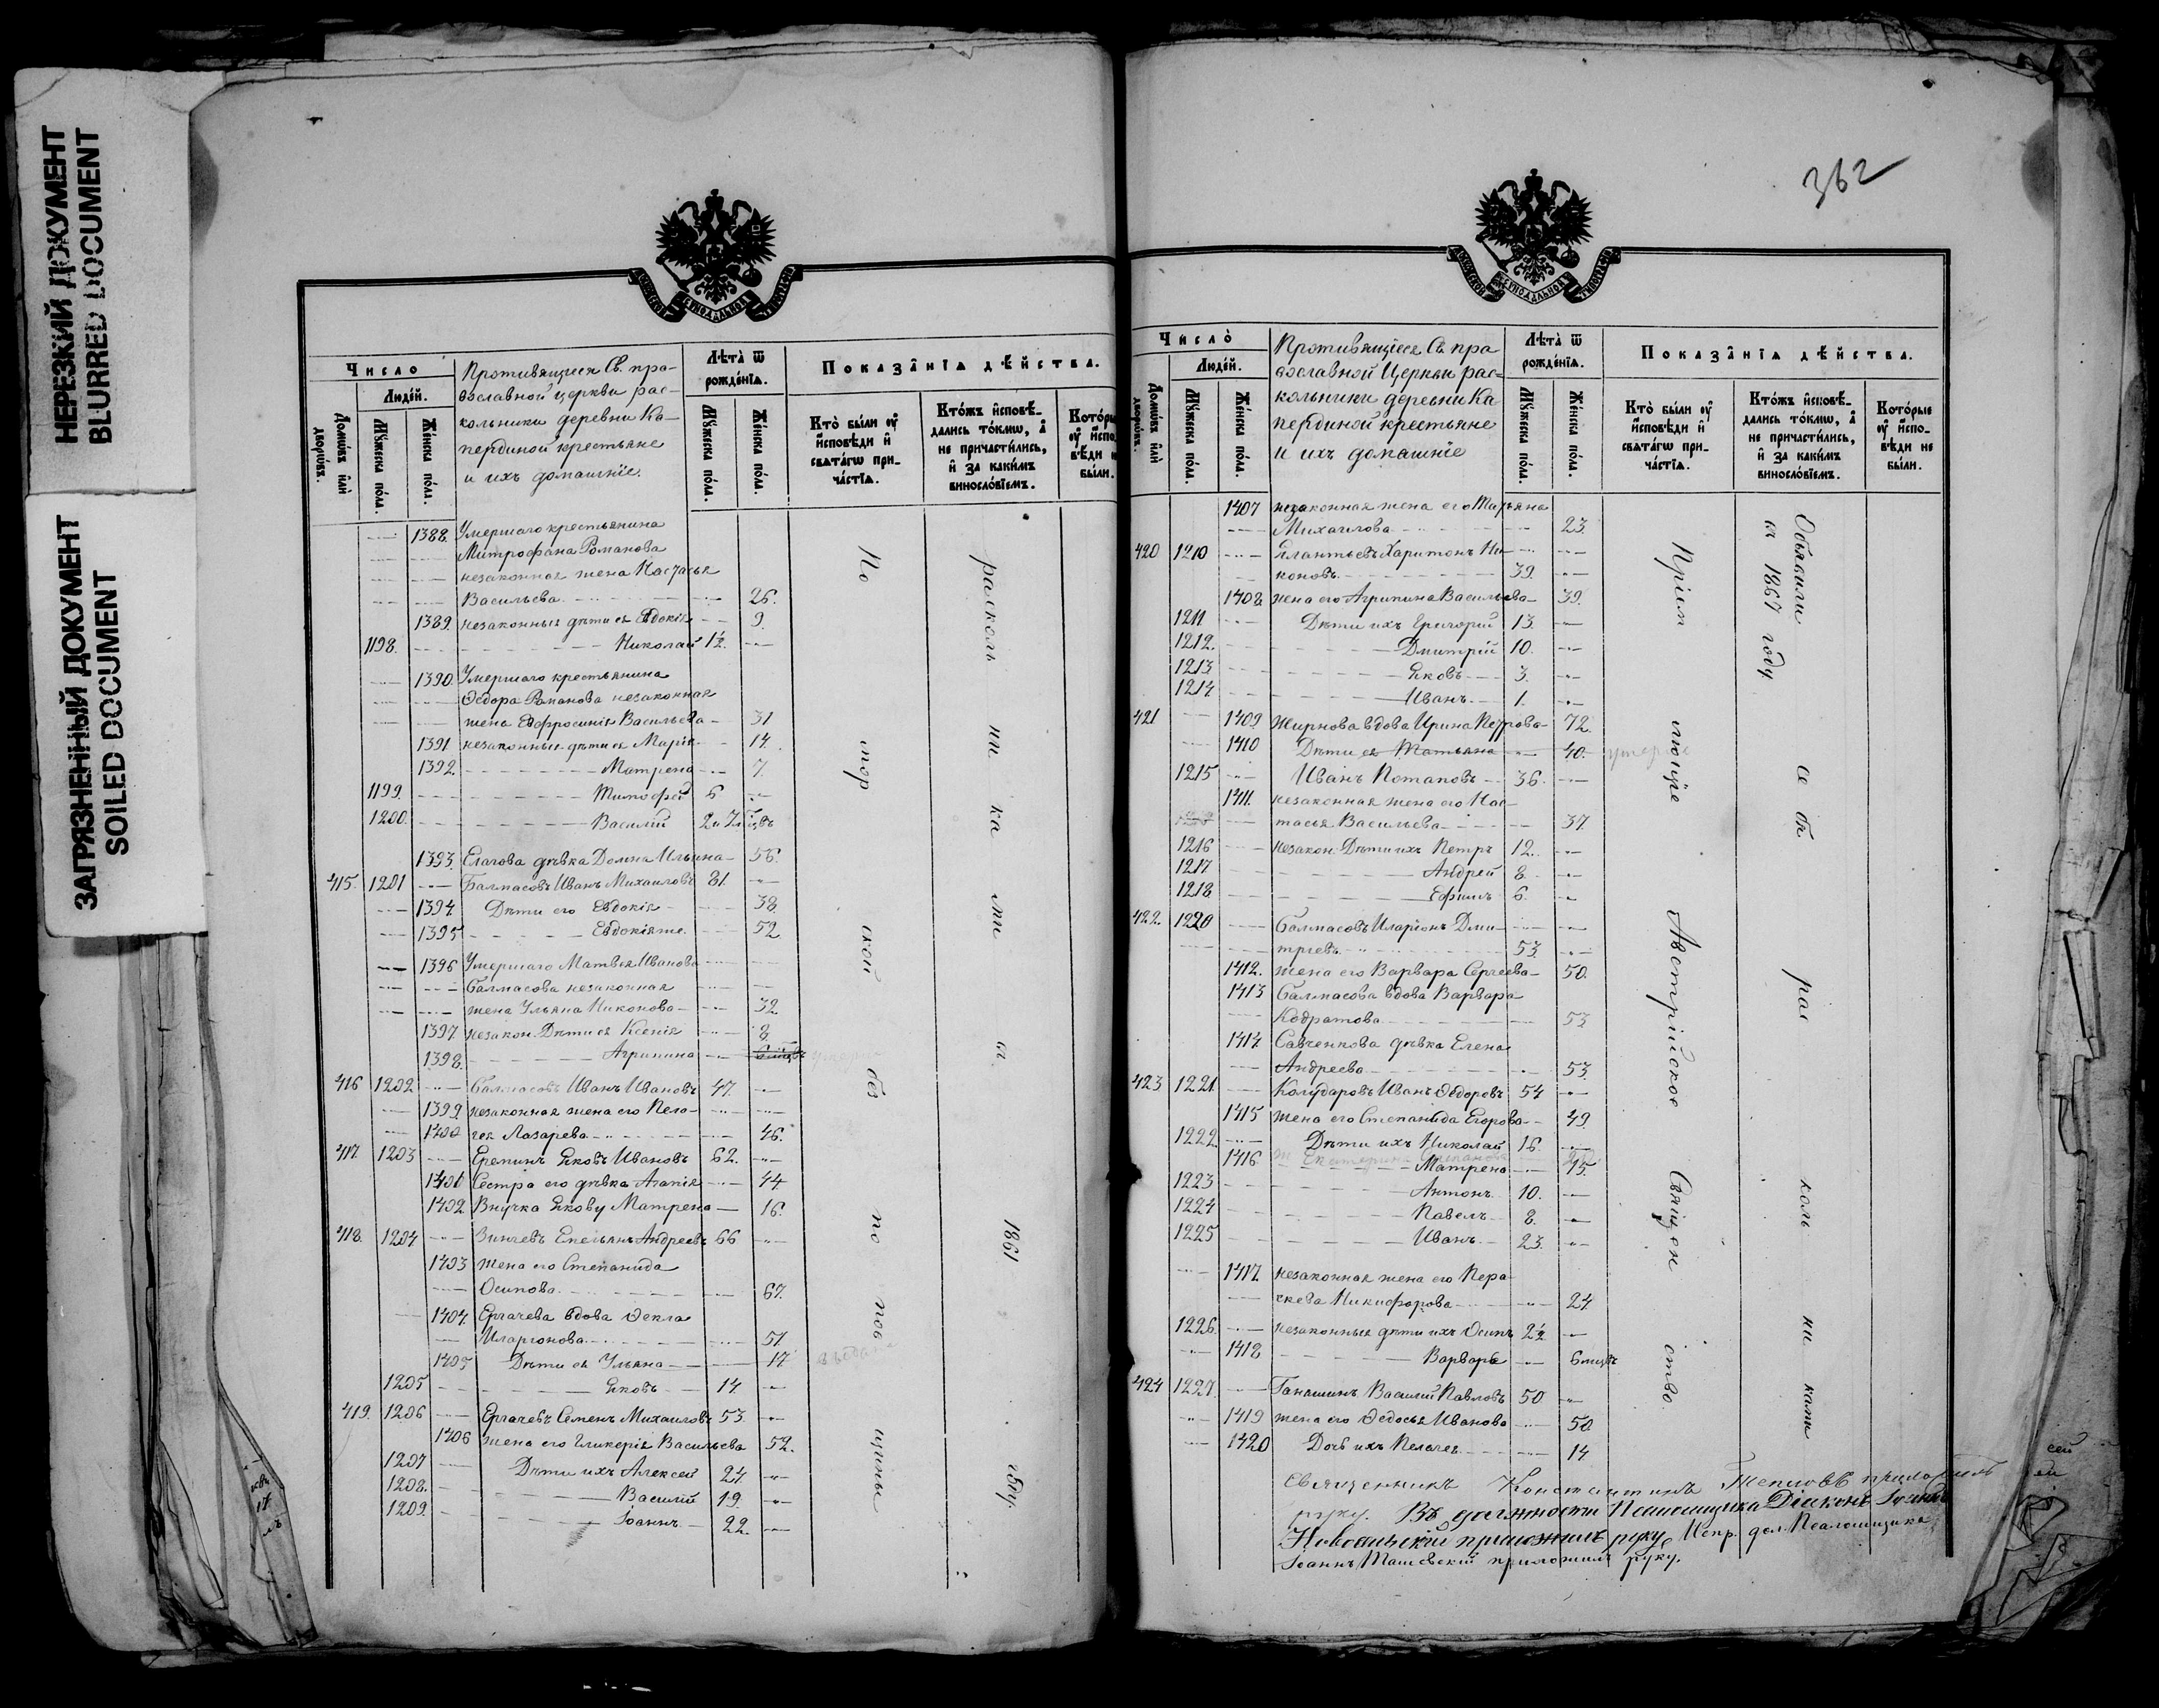 НЕРЕЗКИЙ ДОКУМЕНТ
BLURRED DOCUMENT
ЗАГРЯЗНЕННЫЙ ДОКУМЕНТ
SOILED DOCUMENT
Число
Людей.
Домовъ или дворовъ.
Мужеска пола.
Женска пола.
Противящиеся Св. пра-
вославной церкви рас-
кольники деревни Ка-
пердиной крестьяне
и ихъ домашніе.
Лѣта ѿ рожденія.
Мужеска пола.
Женска пола.
Показанія дѣйства.
Кто были оу исповѣди и свѧтагѡ причастія.
Ктожъ исповѣдались токмѡ, а не причастились, и за какимъ винословіемъ.
Которые оу исповѣди не были.
1388. Умершаго крестьянина
Митрофана Романова
незаконная жена Настасья
Васильева 26.
1389. незаконныя дѣти ея Евдокія 9.
1198. Николай 1½.
1390. Умершаго крестьянина
Ѳедора Романова незаконная
жена Евфросинія Васильева 31
1391 незаконныя дѣти ея Марія 14.
1392. Матрена 7.
1199. Тимофей 6
1200. Василій
1393. дѣвка Домна Ильина 56.
415. 1201 Балмасовъ Иванъ Михаиловъ 81.
1394 Дѣти его Евдокія 38.
1395 Евдокія же 52
1396 Умершаго Матвея Иванова
Балмасова незаконная
жена Ульяна Никонова 32
1397. незакон. Дѣти ея Ксенія 8.
1398. Агрипина
416 1202 Балмасовъ Иванъ Ивановъ 47.
1399. незаконная жена его Пела-
1400 гея Лазарева 46.
417. 1203 Еремин Яковъ Ивановъ 62.
1401 Сестра его дѣвка Агапія 44
1402 Внучка Якову Матрена 16.
418. 1204 Зинчевъ Емельянъ Андреевъ 66
1403 жена его Степанида
Осипова 67.
1404. Ергачева вдова Ѳекла
Иларіонова 51.
1405 Дѣти ея Ульяна 17
1205 Яковъ 14
419. 1206 Ергачевъ Семенъ Михаиловъ 53.
1406 жена его Гликерія Васильева 52.
1207 Дѣти ихъ Алексей 24
1208. Василій 19.
1209. Іоаннъ 22.
По морской без поповщины
раскольниками съ 1861 году.
362
Число
Людей.
Домовъ или дворовъ.
Мужеска пола.
Женска пола.
Противящіеся Св. пра
вославной Церкви рас-
кольники деревни Ка
пердиной крестьяне
и ихъ домашніе
Лѣта ѿ рожденія.
Мужеска пола.
Женска пола.
Показанія дѣйства.
Кто были оу исповѣди и свѧтагѡ причастія.
Ктожъ исповѣдались токмѡ, а не причастились, и за какимъ винословіемъ.
Которые оу исповѣди не были.
1407 незаконная жена его Татьяна
Михаилова 23.
420 1210 Харитонъ Ни-
коновъ 39.
1408. жена его Агрипина Васильева 39.
1211 Дѣти ихъ Григорій 13.
1212. Дмитрій 10.
1213 Яковъ 3.
1214 Иванъ 1.
421 1409 Жирнова вдова Ирина Петрова 72.
1410 Дѣти ея Татьяна 40.
1215 Иванъ Потаповъ 36.
1411. незаконная жена его Нас-
тасья Васильева 37.
1216 незакон. Дѣти ихъ Петръ 12.
1217 Андрей 8.
1218 Ефимъ 6.
422. 1220 Балмасовъ Иларіонъ Дми-
тріевъ 53.
1412. жена его Варвара Сергеева 50.
1413 Балмасова вдова Варвара
Кодратова 53
1414 Савченкова дѣвка Елена
Андреева 53.
423 1221 Колударовъ Иванъ Ѳедоровъ 54
1415 жена его Степанида Егорова 49.
1222 Дѣти ихъ Николай 16.
1416 Матрена 15.
1223 Антонъ 10.
1224 Павелъ 8.
1225 Иванъ 23.
1417 незаконная жена его Пера
скева Никифорова 24
1226 незаконныя дѣти ихъ Осипъ 2½
1418 Варвара 6 мцвъ
424 1227. Ганашинъ Василій Павловъ 50
1419 жена его Ѳедосья Иванова 50.
1420 Дочь ихъ Пелагея 14
Пріемлющіе Австрійское Священство.
Объявили себя раскольниками
въ 1867 году
Священникъ Константинъ Тепловъ приложилъ
руку. Въ должности Псаломщика Діаконъ Іоаннъ
приложилъ руку. Испр. дол. Псаломщика
Іоаннъ приложилъ руку.